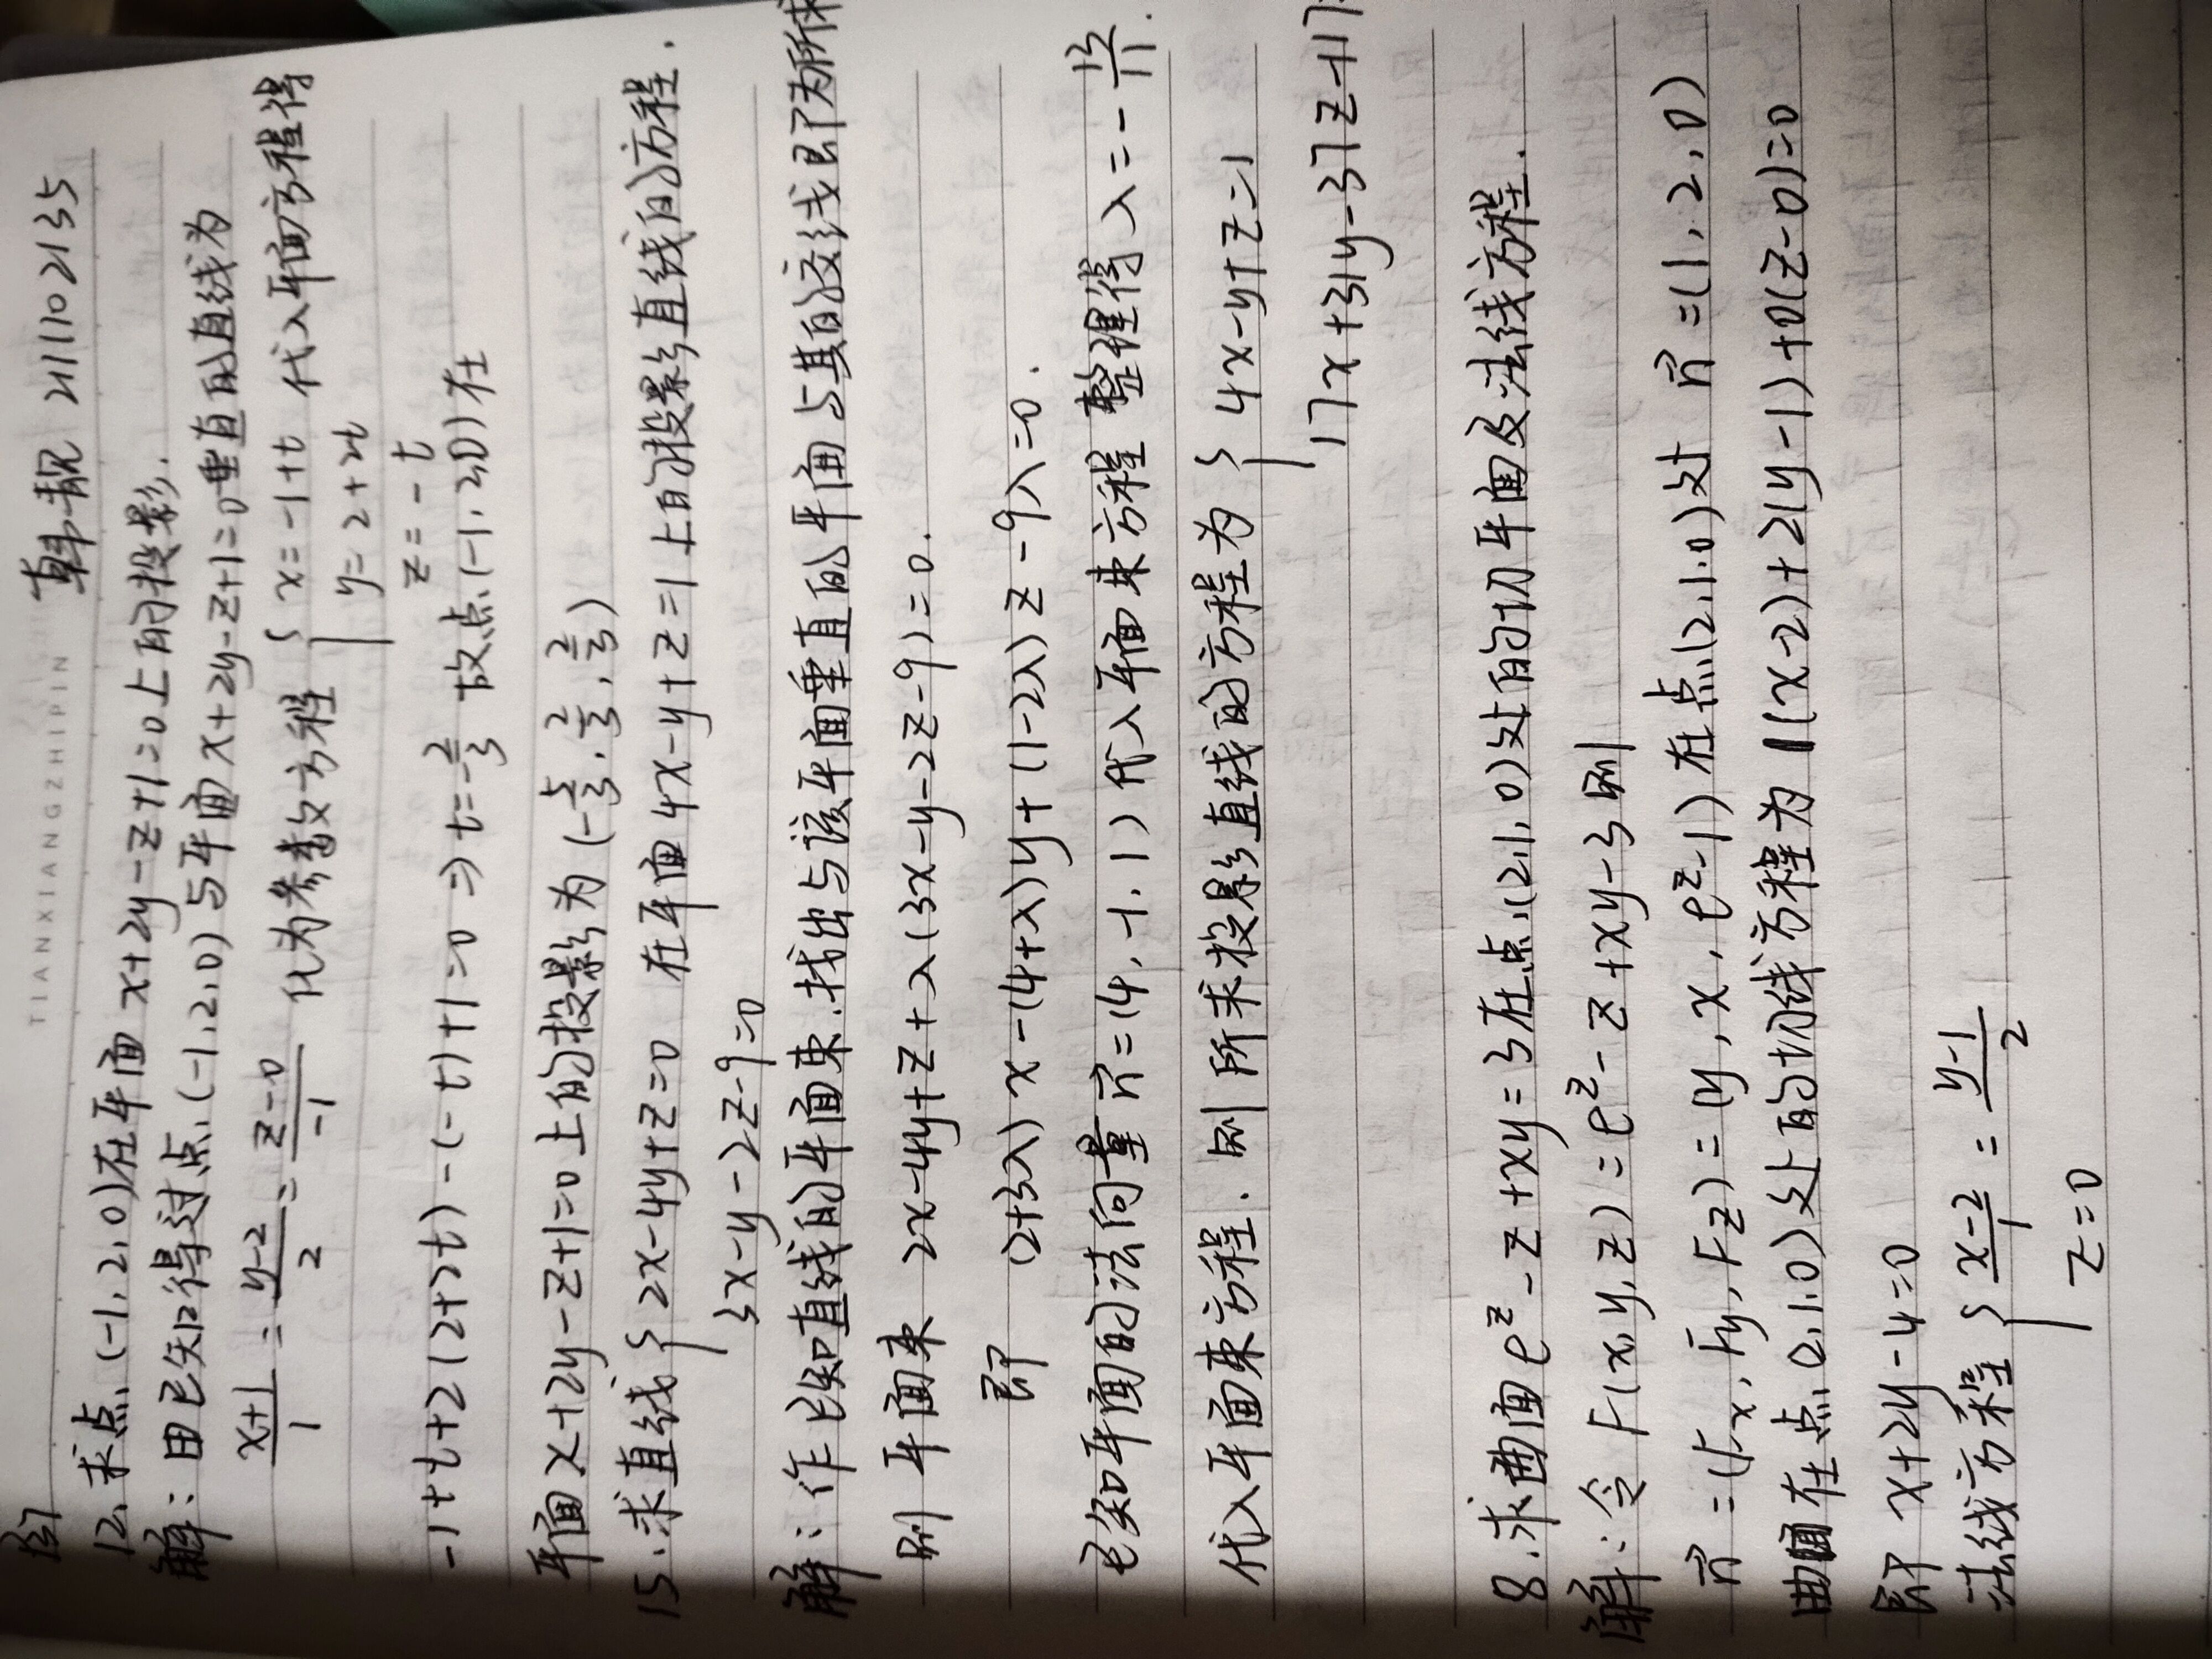 TIANXIANGZHIPIN
韩靓 2111102135
12.求点(-1,2,0)在平面 x+2y-z+1=0上的投影.
解:由已知得过点(-1,2,0)与平面x+2y-z+1=0垂直的直线为
(x+1)/1 = (y-2)/2 = (z-0)/-1 化为参数方程 { x=-1+t 代入平面方程得
y=2+2t
z=-t
-1+t+2(2+2t)-(-t)+1=0 => t=-2/3 故点(-1,2,0)在
平面x+2y-z+1=0上的投影为(-5/3, 2/3, 2/3)
15.求直线 { 2x-4y+z=0 在平面4x-y+z=1上的投影直线的方程.
3x-y-2z-9=0
解:作已知直线的平面束.找出与该平面垂直的平面与其的交线即为所求
则 平面束 2x-4y+z+λ(3x-y-2z-9)=0.
即 (2+3λ)x-(4+λ)y+(1-2λ)z-9λ=0.
已知平面的法向量n=(4,-1,1)代入平面束方程整理得λ=-13/11.
代入平面束方程.则所求投影直线的方程为 { 4x-y+z=1
17x+31y-37z-117=
8.求曲面e^z-z+xy=3在点(2,1,0)处的切平面及法线方程.
解:令F(x,y,z)=e^z-z+xy-3则
n=(Fx,Fy,Fz)=(y,x,e^z-1)在点(2,1,0)处 n=(1,2,0)
曲面在点(2,1,0)处的切线方程为1(x-2)+2(y-1)+0(z-0)=0
即 x+2y-4=0
法线方程 { (x-2)/1 = (y-1)/2
z=0